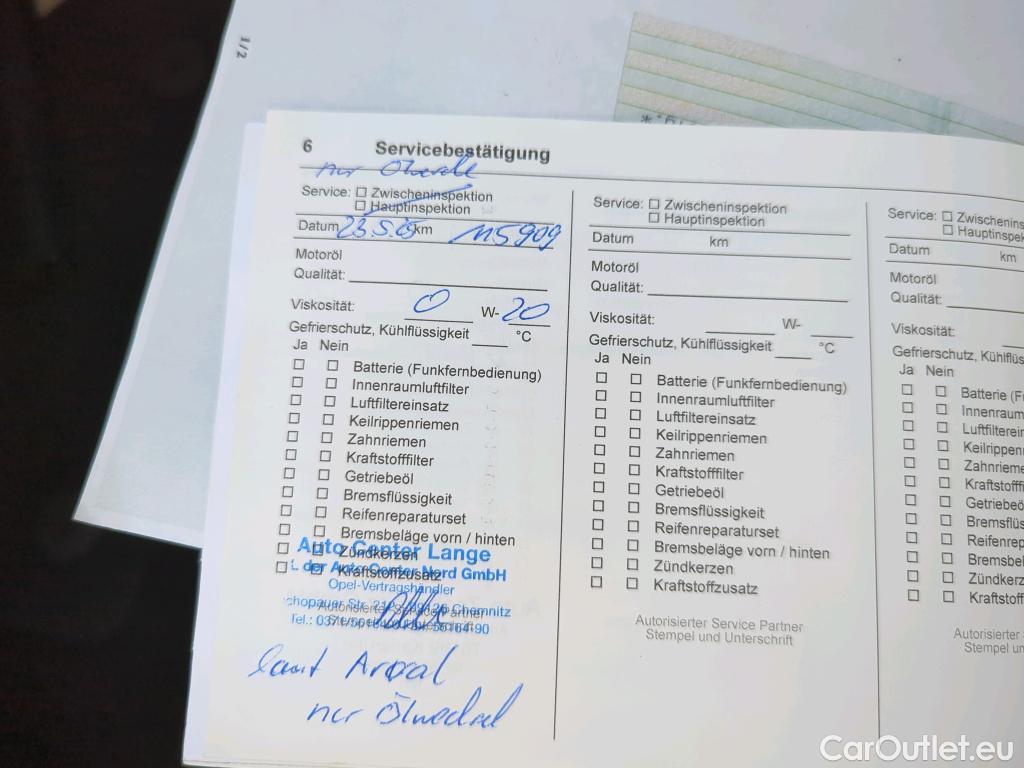 1/2
6 Servicebestätigung
nur Ölwechsel
Service: ☐ Zwischeninspektion
☐ Hauptinspektion
Datum 23.5.25 km 115909
Motoröl
Qualität:
Viskosität: 0 W- 20
Gefrierschutz, Kühlflüssigkeit °C
Ja Nein
☐ ☐ Batterie (Funkfernbedienung)
☐ ☐ Innenraumluftfilter
☐ ☐ Luftfiltereinsatz
☐ ☐ Keilrippenriemen
☐ ☐ Zahnriemen
☐ ☐ Kraftstofffilter
☐ ☐ Getriebeöl
☐ ☐ Bremsflüssigkeit
☐ ☐ Reifenreparaturset
☐ ☐ Bremsbeläge vorn / hinten
☐ ☐ Zündkerzen
☐ ☐ Kraftstoffzusatz
Autorisierter Service Partner
Stempel und Unterschrift
Auto Center Lange
der Auto Center Nord GmbH
Opel-Vertragshändler
chopauer Str. 09126 Chemnitz
laut Arval
nur Ölwechsel
Service: ☐ Zwischeninspektion
☐ Hauptinspektion
Datum km
Motoröl
Qualität:
Viskosität: W-
Gefrierschutz, Kühlflüssigkeit °C
Ja Nein
☐ ☐ Batterie (Funkfernbedienung)
☐ ☐ Innenraumluftfilter
☐ ☐ Luftfiltereinsatz
☐ ☐ Keilrippenriemen
☐ ☐ Zahnriemen
☐ ☐ Kraftstofffilter
☐ ☐ Getriebeöl
☐ ☐ Bremsflüssigkeit
☐ ☐ Reifenreparaturset
☐ ☐ Bremsbeläge vorn / hinten
☐ ☐ Zündkerzen
☐ ☐ Kraftstoffzusatz
Autorisierter Service Partner
Stempel und Unterschrift
Service: ☐ Zwischenins
☐ Hauptinspek
Datum km
Motoröl
Qualität:
Viskosität:
Gefrierschutz, Kühlflüss
Ja Nein
☐ ☐ Batterie (Fu
☐ ☐ Innenraum
☐ ☐ Luftfilterein
☐ ☐ Keilrippen
☐ ☐ Zahnrieme
☐ ☐ Kraftstofff
☐ ☐ Getriebeö
☐ ☐ Bremsflüs
☐ ☐ Reifenrep
☐ ☐ Bremsbel
☐ ☐ Zündkerz
☐ ☐ Kraftstoff
Autorisierter
Stempel un
CarOutlet.eu